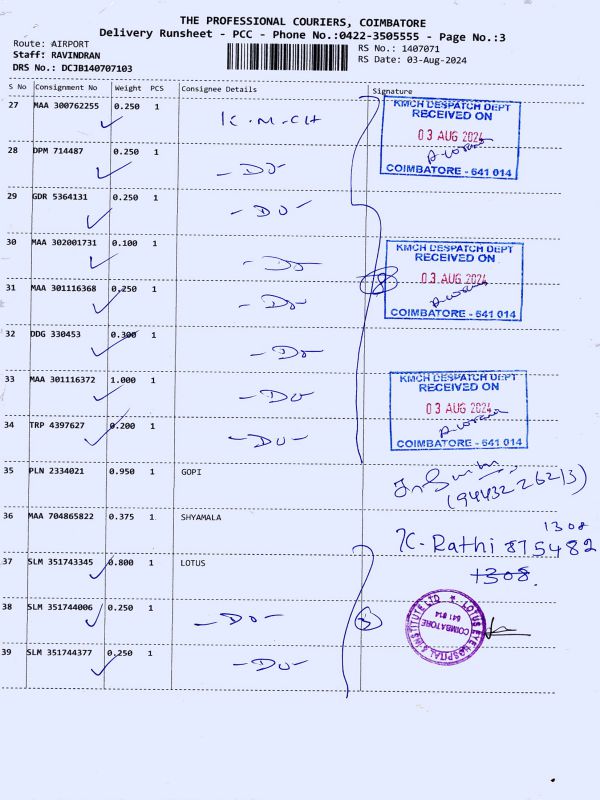 THE PROFESSIONAL COURIERS, COIMBATORE
Delivery Runsheet - PCC - Phone No.:0422-3505555 - Page No.:3
Route: AIRPORT
Staff: RAVINDRAN
DRS No.: DCJB140707103
RS No.: 1407071
RS Date: 03-Aug-2024
S No Consignment No Weight PCS Consignee Details Signature
27 MAA 300762255 0.250 1 K.M.CH
28 DPM 714487 0.250 1 -DO-
29 GDR 5364131 0.250 1 -DO-
30 MAA 302001731 0.100 1 -DO-
31 MAA 301116368 0.250 1 -DO-
32 DDG 330453 0.300 1 -DO-
33 MAA 301116372 1.000 1 -DO-
34 TRP 4397627 0.200 1 -DO-
35 PLN 2334021 0.950 1 GOPI
36 MAA 704865822 0.375 1 SHYAMALA
37 SLM 351743345 0.800 1 LOTUS
38 SLM 351744006 0.250 1 -DO-
39 SLM 351744377 0.250 1 -DO-
KMCH DESPATCH DEPT
RECEIVED ON
03 AUG 2024
COIMBATORE - 641 014
8
KMCH DESPATCH DEPT
RECEIVED ON
03 AUG 2024
COIMBATORE - 641 014
KMCH DESPATCH DEPT
RECEIVED ON
03 AUG 2024
COIMBATORE - 641 014
(9443226213)
1308
K. Rathi 875482
1308.
LOTUS EYE HOSPITAL & INSTITUTE LTD
COIMBATORE
641 014